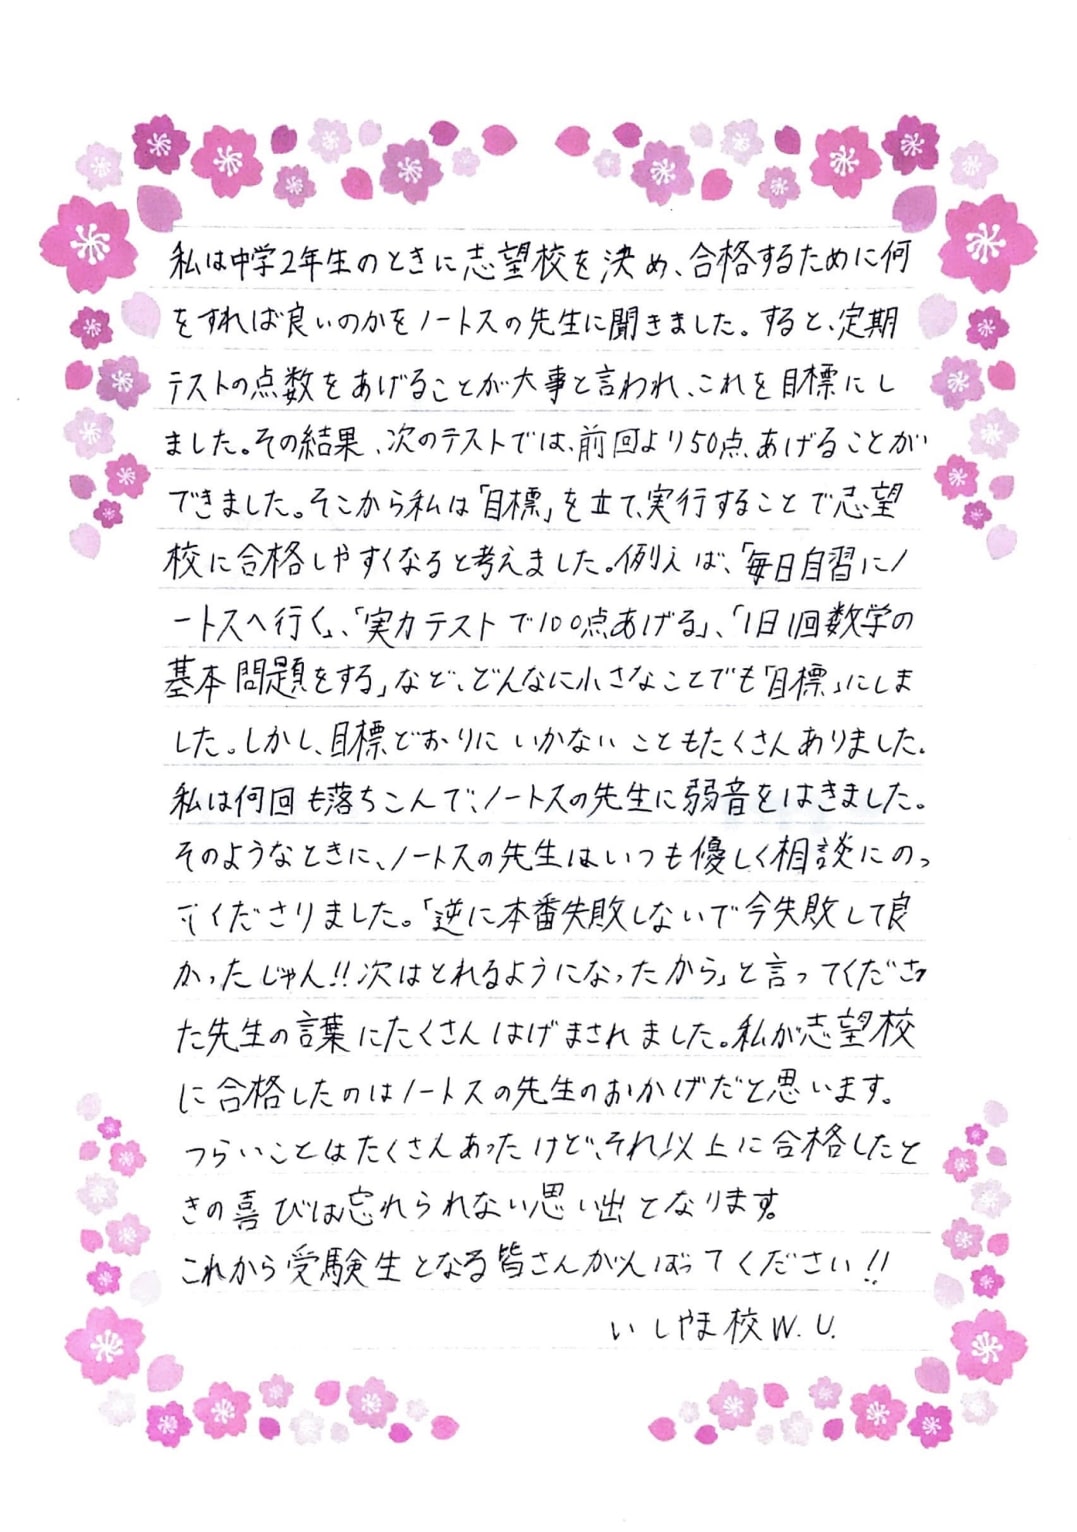 私は中学2年生のときに志望校を決め、合格するために何
をすれば良いのかをノートスの先生に聞きました。すると、定期
テストの点数をあげることが大事と言われ、これを目標にし
ました。その結果、次のテストでは、前回より50点あげることが
できました。そこから私は「目標」を立て、実行することで志望
校に合格しやすくなると考えました。例えば、「毎日自習にノ
ートスへ行く」、「実力テストで100点あげる」、「1日1回数学の
基本問題をする」など、どんなに小さなことでも「目標」にしま
した。しかし、目標どおりにいかないこともたくさんありました。
私は何回も落ちこんで、ノートスの先生に弱音をはきました。
そのようなときに、ノートスの先生はいつも優しく相談にのっ
てくださりました。「逆に本番失敗しないで今失敗して良
かったじゃん!!次はとれるようになったから」と言ってくださっ
た先生の言葉にたくさんはげまされました。私が志望校
に合格したのはノートスの先生のおかげだと思います。
つらいことはたくさんあったけど、それ以上に合格したと
きの喜びは忘れられない思い出となります。
これから受験生となる皆さんがんばってください!!
いしやま校W.U.